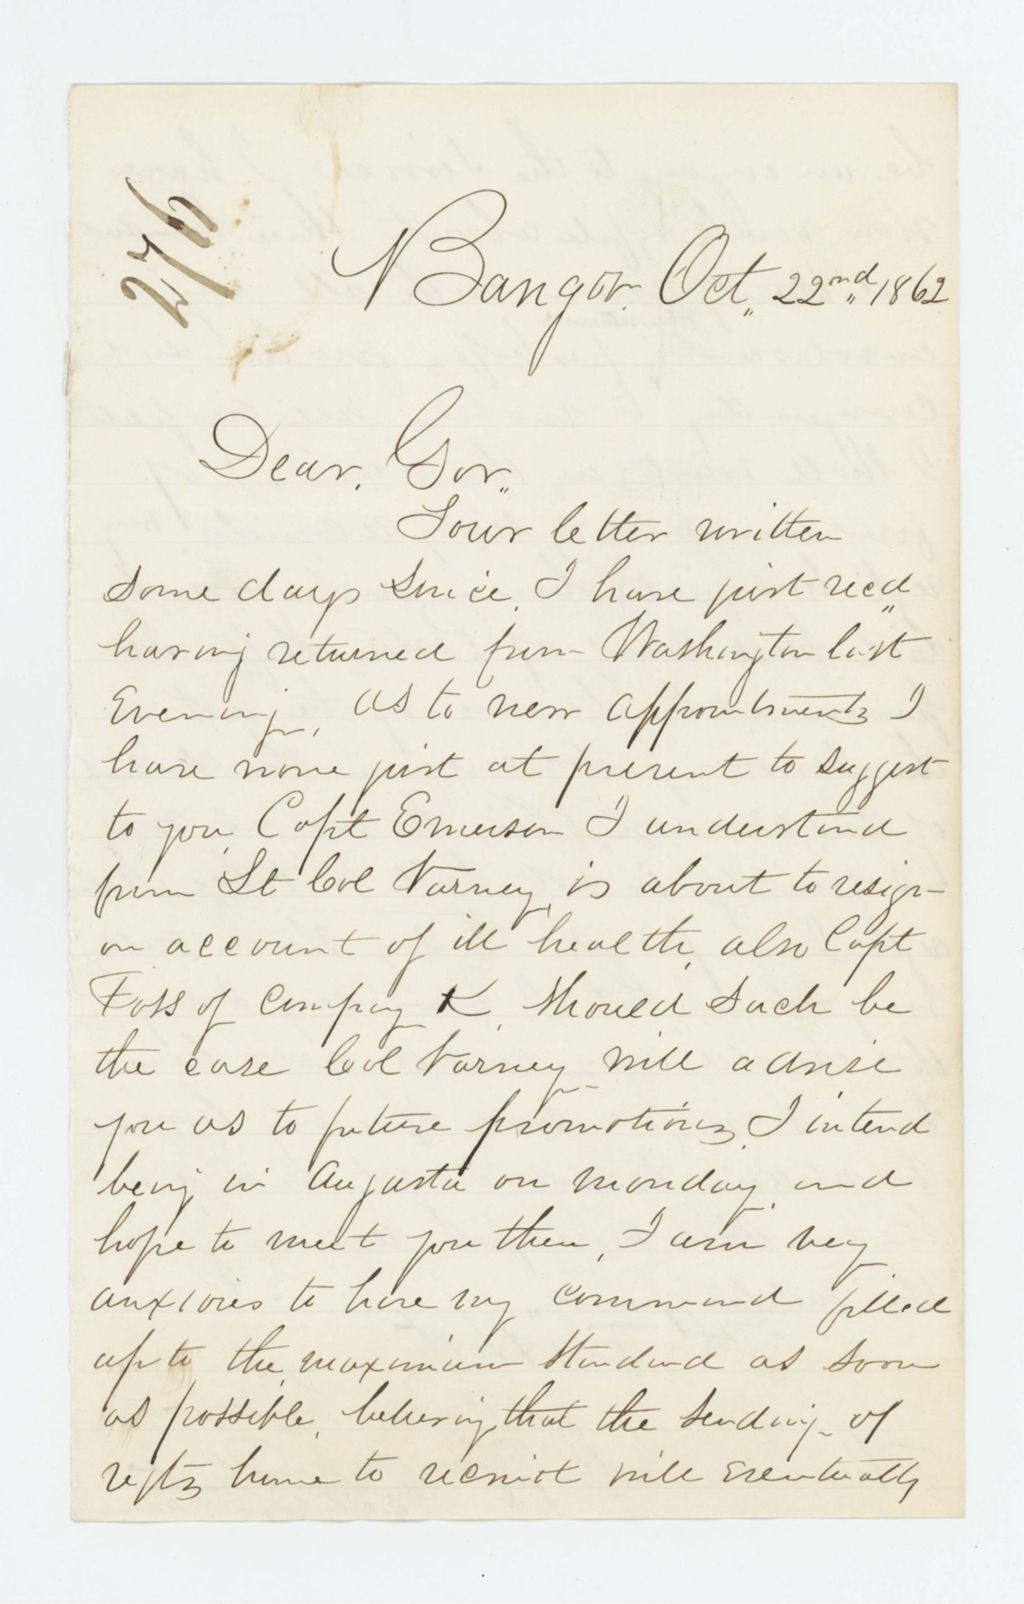 276
Bangor. Oct,, 22nd,, 1862
Dear. Gov,,
Your letter written
some days since, I have just recd,,
having returned from Washington last
Evening, as to new appointments I
have none just at present to suggest
to you, Capt Emerson I understand
from Lt Col Varney, is about to resign
on account of ill health, also Capt
Foss of Compay K, Should such be
the case Col Varney will advise
you as to future promotions, I intend
being in Augusta on monday, and
hope to meet you then, I am very
anxious to have my command filled
up to the maximum standard as soon
as possible, believing that the sending of
regts home to recruit will eventually